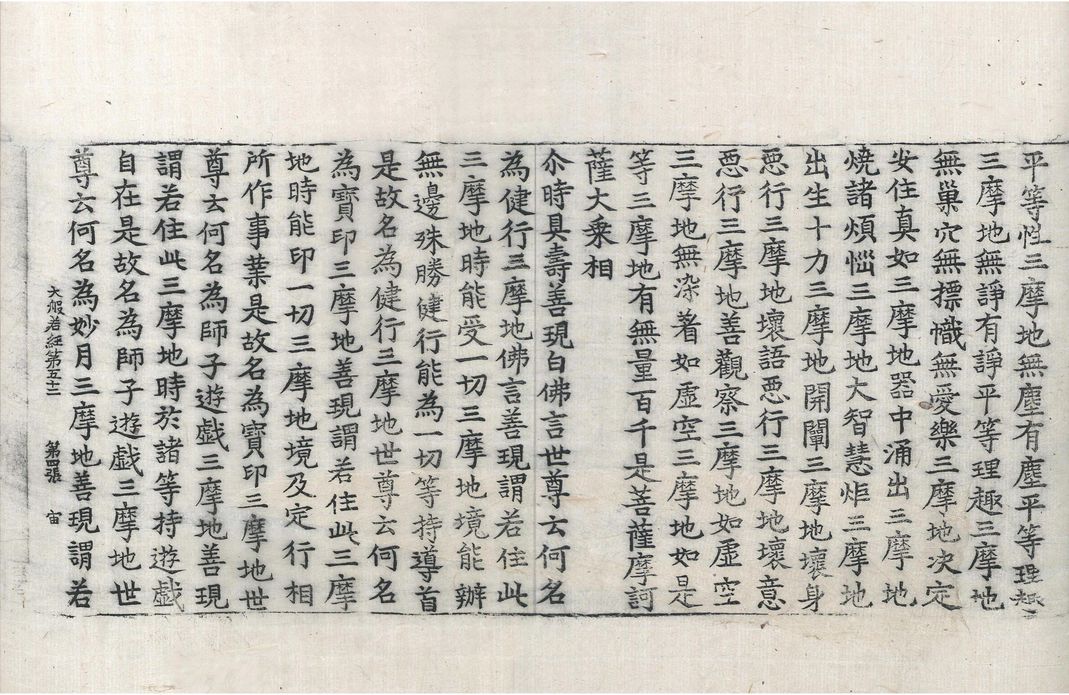 平等性三摩地無塵有塵平等理趣
三摩地無諍有諍平等理趣三摩地
無巢穴無摽幟無愛樂三摩地决定
安住真如三摩地器中涌出三摩地
燒諸煩惱三摩地大智慧炬三摩地
出生十力三摩地開闡三摩地壞身
惡行三摩地壞語惡行三摩地壞意
惡行三摩地善觀察三摩地如虛空
三摩地無染著如虛空三摩地如是
等三摩地有無量百千是菩薩摩訶
薩大乘相
尒時具壽善現白佛言世尊云何名
為健行三摩地佛言善現謂若住此
三摩地時能受一切三摩地境能辦
無邊殊勝健行能為一切等持導首
是故名為健行三摩地世尊云何名
為寶印三摩地善現謂若住此三摩
地時能印一切三摩地境及定行相
所作事業是故名為寶印三摩地世
尊云何名為師子遊戲三摩地善現
謂若住此三摩地時於諸等持遊戲
自在是故名為師子遊戲三摩地世
尊云何名為妙月三摩地善現謂若
大般若經第五十二 第四張 宙